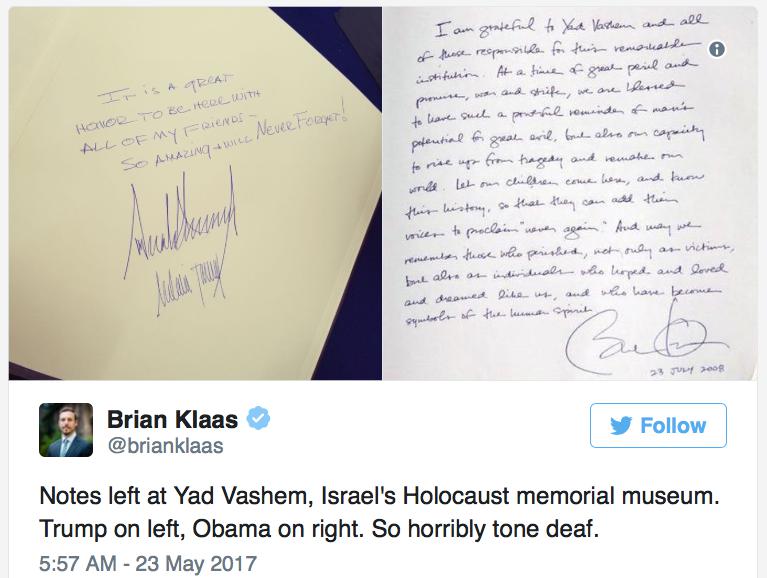 IT IS A GREAT
HONOR TO BE HERE WITH
ALL OF MY FRIENDS -
SO AMAZING + WILL NEVER FORGET!
I am grateful to Yad Vashem and all
of those responsible for this remarkable
institution. At a time of great peril and
promise, war and strife, we are blessed
to have such a powerful reminder of man's
potential for great evil, but also our capacity
to rise up from tragedy and remake our
world. Let our children come here, and know
this history, so that they can add their
voices to proclaim "never again." And may we
remember those who perished, not only as victims,
but also as individuals who hoped and loved
and dreamed like us, and who have become
symbols of the human spirit.
23 JULY 2008
Brian Klaas
@brianklaas
Follow
Notes left at Yad Vashem, Israel's Holocaust memorial museum.
Trump on left, Obama on right. So horribly tone deaf.
5:57 AM - 23 May 2017